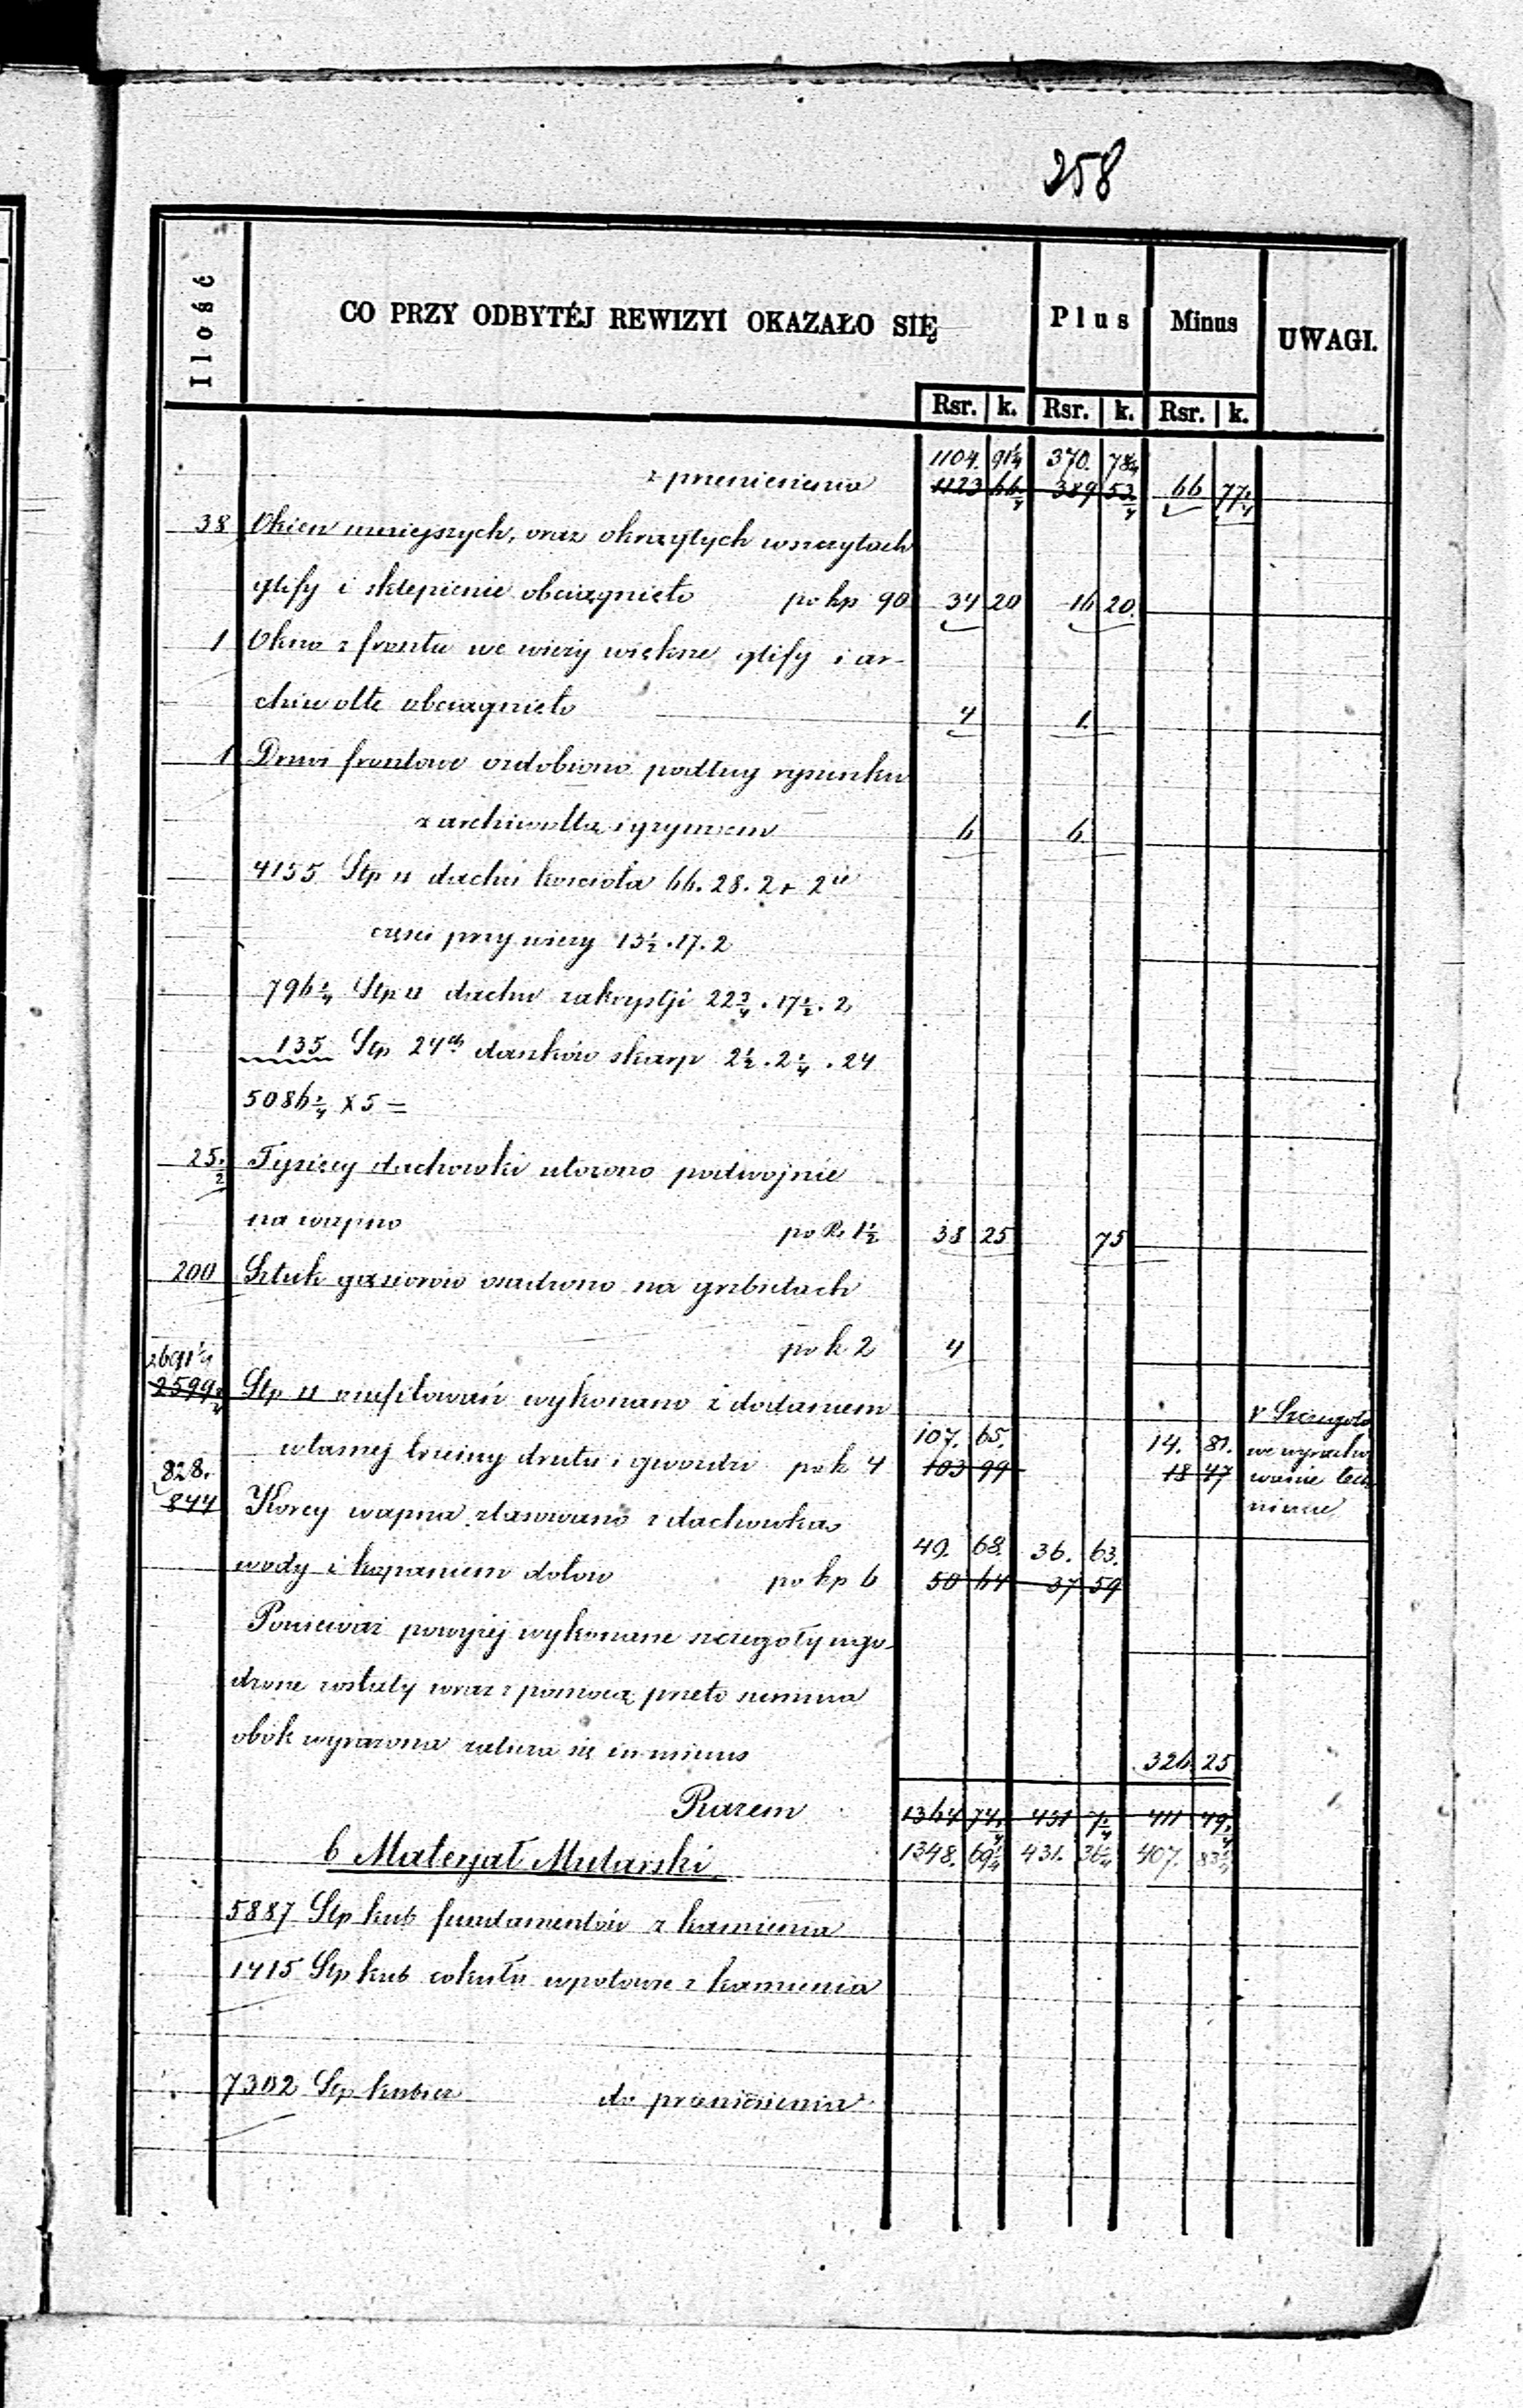 258
Ilość CO PRZY ODBYTÉJ REWIZYI OKAZAŁO SIĘ Plus Minus UWAGI.
Rsr. k. Rsr. k. Rsr. k.
1104. 91 1/4 370. 78 3/4
z przeniesienia 1123 66 1/4 389 53 3/4 66 77 1/4
38 Okien mniejszych, oraz okrągłych w szczytach
glify i sklepienie obciągnięto po kp 90 34 20 16 20.
1 Okno z frontu we wieży większe glify i ar-
chiwoltę obciągnięto 4 1.
1 Drzwi frontowe ozdobiono podług rysunku
z archiwoltą i gzymsem 6 6.
4155 Stp □ dachu kościoła 66. 28. 2 + 2ie
części przy wieży 13 1/2 . 17. 2
796 1/4 Stp □ dachu zakrystji 22 3/4 . 17 1/2 . 2
135 Stp 24ch daszków skarp 2 1/2 . 2 1/4 . 24
5086 1/4 X 5 =
25 1/2 Tysięcy dachówki ułożono podwójnie
na wapno po R. 1 1/2 38 25 75
200 Sztuk gąsiorów osadzono na grzbietach
po k 2 4
2691 1/4
2599 3/4 Stp □ sufitowań wykonano z dodaniem v Szczegóło
107. 65. 14. 81. we wyracho
własnej trzciny drutu i gwoździ po k 4 103 99 18 47 wanie tech
828. niczne
844 Korcy wapna zlasowano z dachówką
49. 68. 36. 63.
wody i kopaniem dołów po kp 6 50 64 37 59
Ponieważ powyżej wykonane szczegóły ugo-
dzone zostały wraz z pomocą, przeto summa
obok wyrażona zalicza się in minus 326 25
Razem 1364 74 1/4 451 7 3/4 411 49 1/4
b Materjał Mularski. 1348. 69 1/4 431. 36 3/4 407. 83 1/4
5887 Stp kub fundamentów z kamienia
1415 Stp kub cokułu w połowie z kamienia
7302 Stp kubicz do przeniesienia